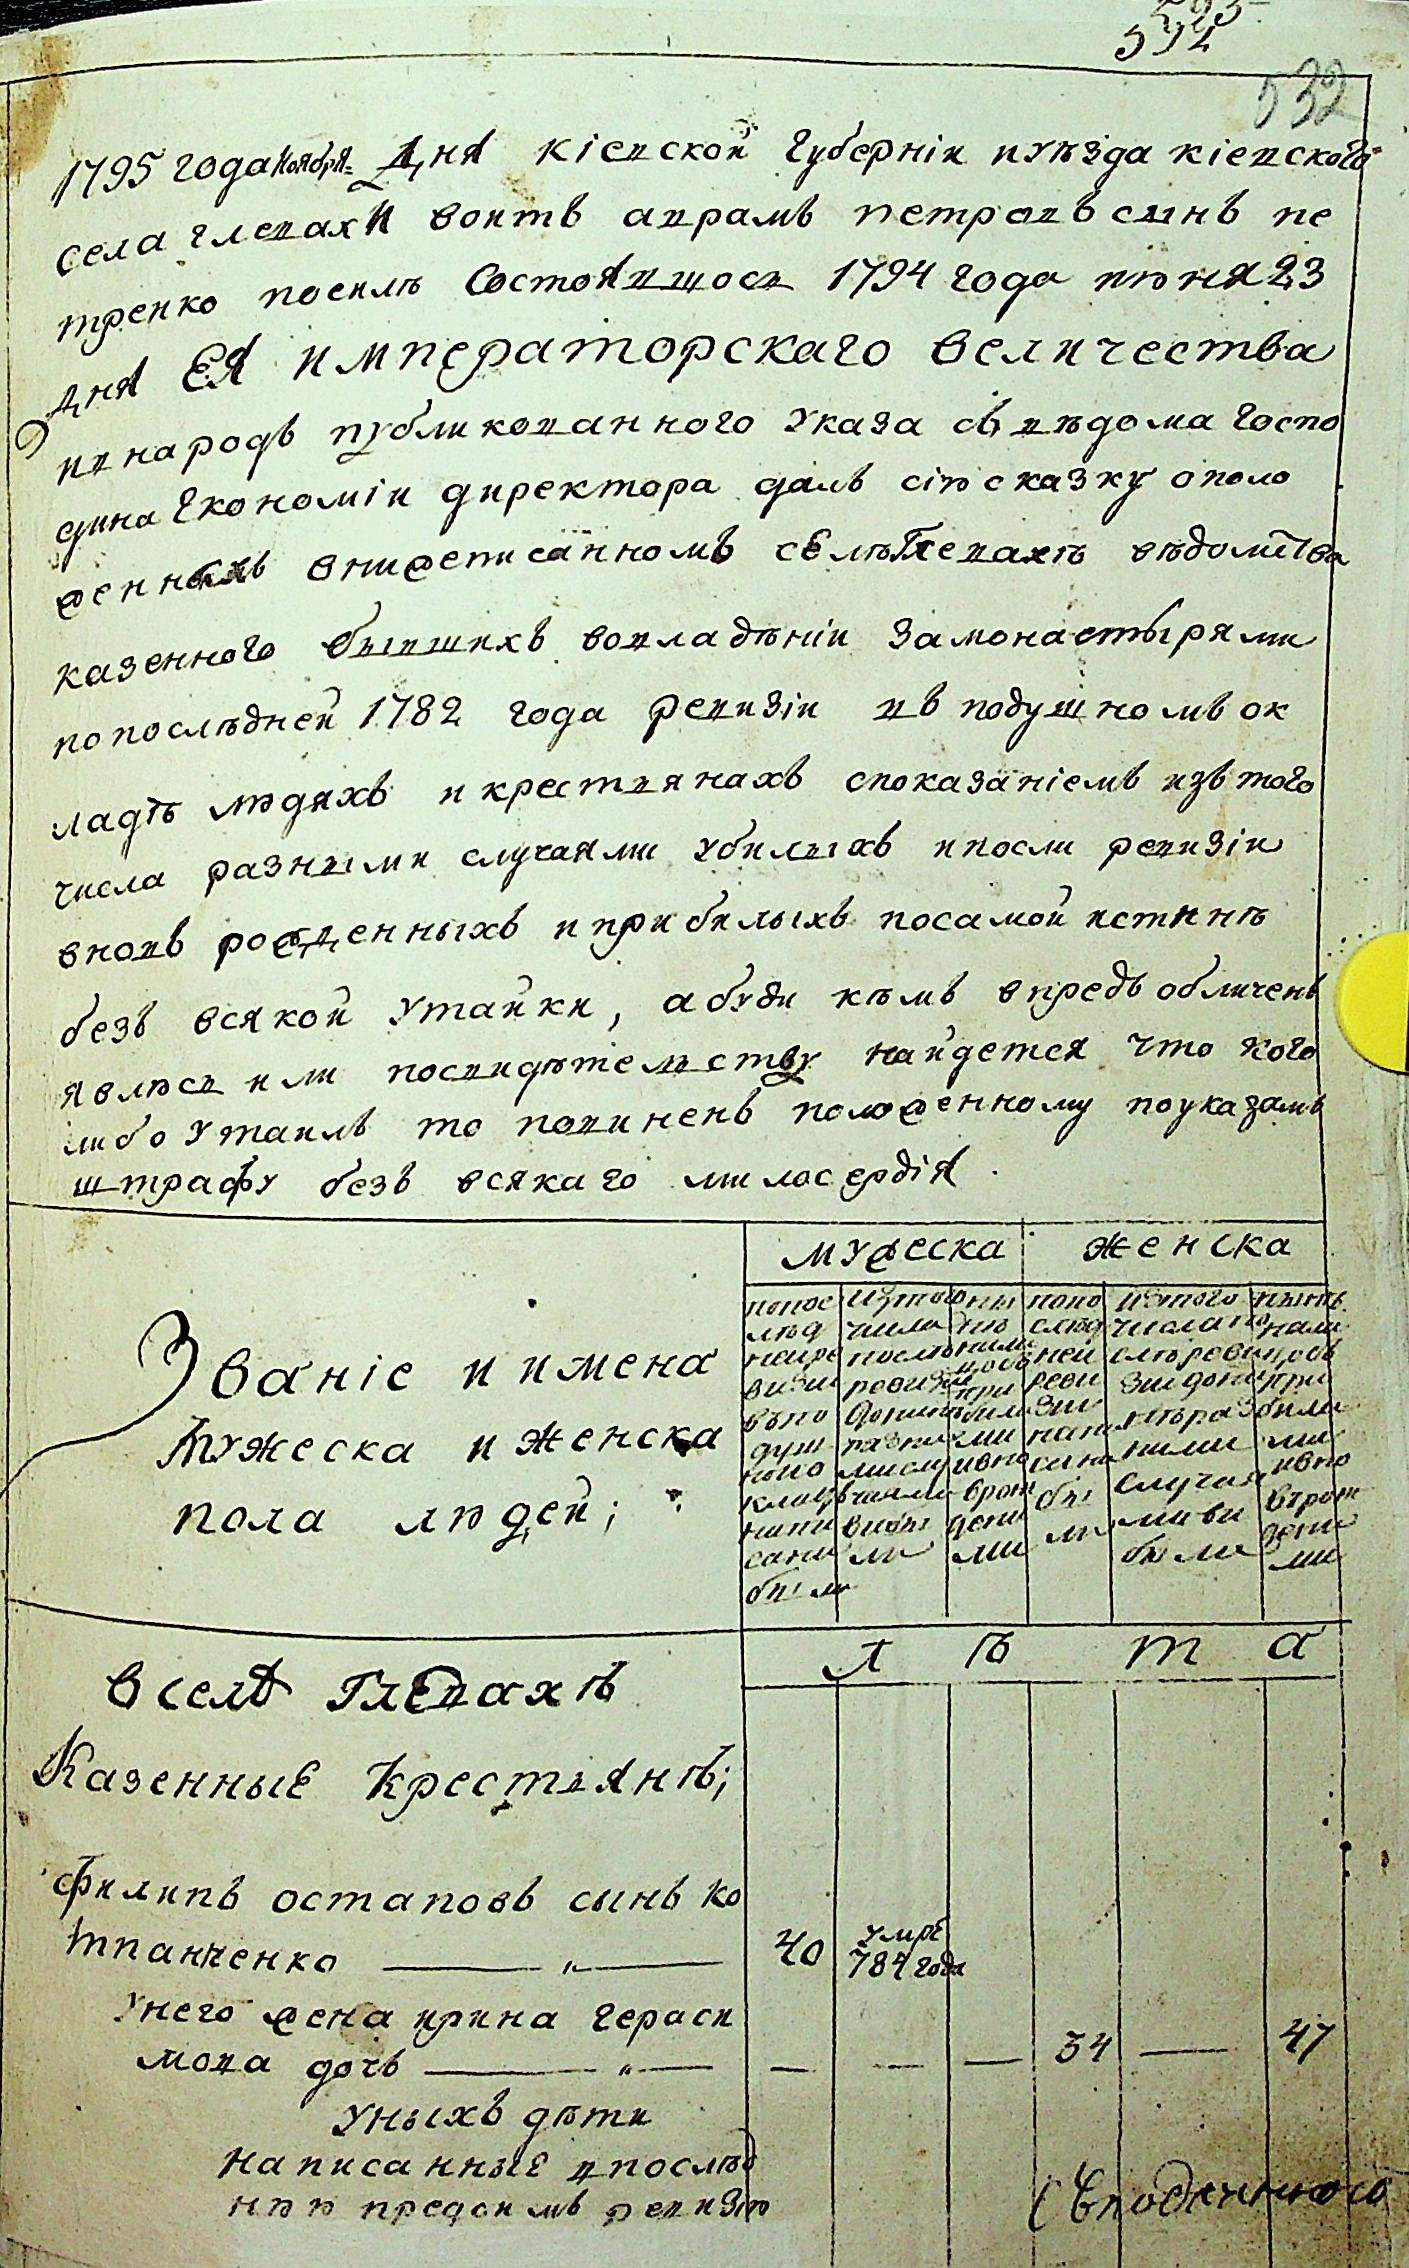 532
1795 года Ноября " дня кіевской губерніи иуѣзда кіевского
села глевахи воитъ аврамъ петровъ синъ пе
тренко посилѣ Состоявшося 1794 года июня 23
дня ЕЯ императорскаго величества
ивнародъ публикованного указа съ вѣдома госпо
дина Економіи директора далъ сію сказку ополо
женныхъ внижеписанномъ селѣ Глевахѣ вѣдомства
казенного бывшихъ вовладѣніи замонастырями
попослѣдней 1782 года ревизіи въ подушномъ ок
ладѣ людяхъ и крестянахъ споказаніемъ изътого
числа разными случаями убилыхъ ипосли ревизіи
вновъ рожденныхъ и прибилыхъ посамой истинѣ
безъ всякой утайки, а буди кѣмъ впредь обличенъ
явлюсь или посвидѣтельству найдется что кого
либо утаилъ то повиненъ положенному поуказамъ
штрафу безъ всякаго милосердія.
мужеска женска
Званіе и имена
мужеска и женска
пола людей;
попос
лѣд
ней ре
визіи
въ по
душ
ном о
кладѣ
напи
сани
были
изтого
числа
послѣ
ревизи
разни
ми слу
чаями
били
попо
слѣд
ней
реви
зіи
напи
сани
бы
ли
изтого
числа по
слѣ реви
зіи до ни
нѣ раз
ними
случая
ми ви
были
прибили
ми
ивно
въ рож
дени
ми
л ѣ т а
вселѣ глевахѣ
Казенные крестянѣ;
Филипъ остаповъ сынъ ко
тпанченко — „ — 40 умре 784 года
Унего жена ирина гераси
мова дочъ — „ — — — — 34 — 47
уныхъ дѣти
написанные впослѣд
нюю предсимъ ревизію